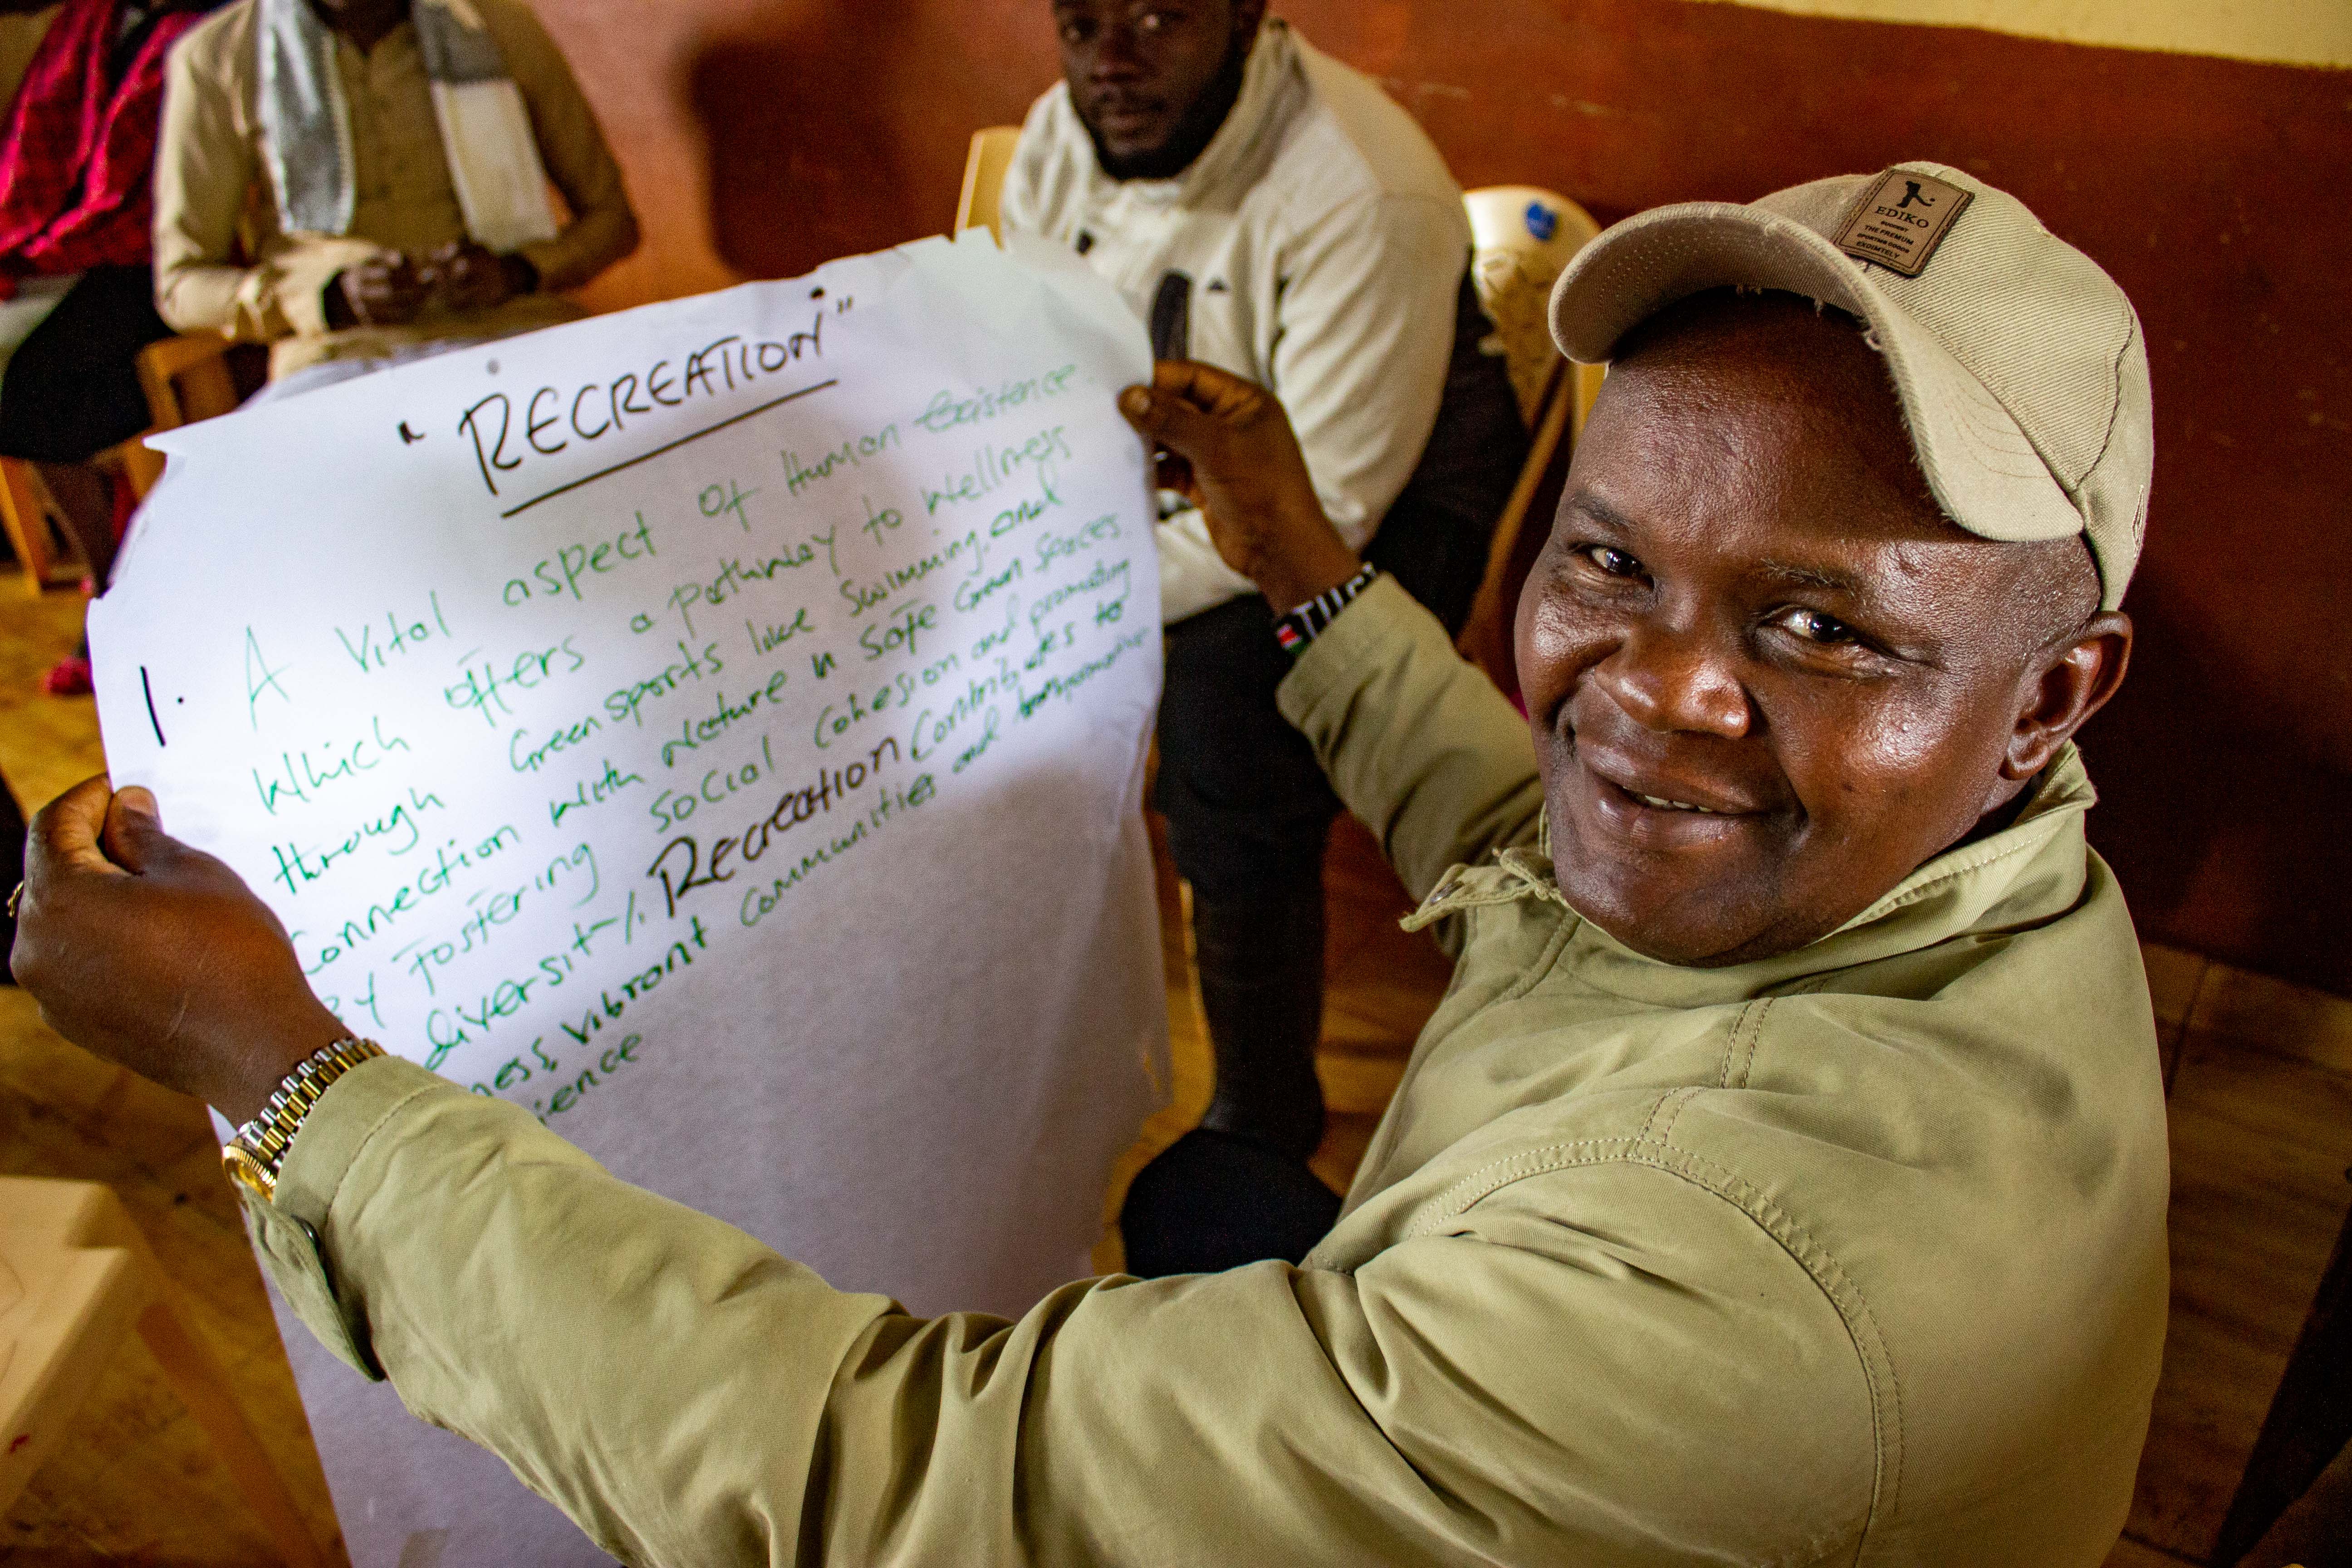 "RECREATION"
1. A Vital aspect of Human Existence
Which offers a pathway to wellness
through Green sports like Swimming, and
Connection with Nature in Safe Green Spaces.
By Fostering social cohesion and promoting
diversity. Recreation Contributes to
ness, vibrant communities and
ience
EDIKO
THE PREMIUM
SPORTING GOODS